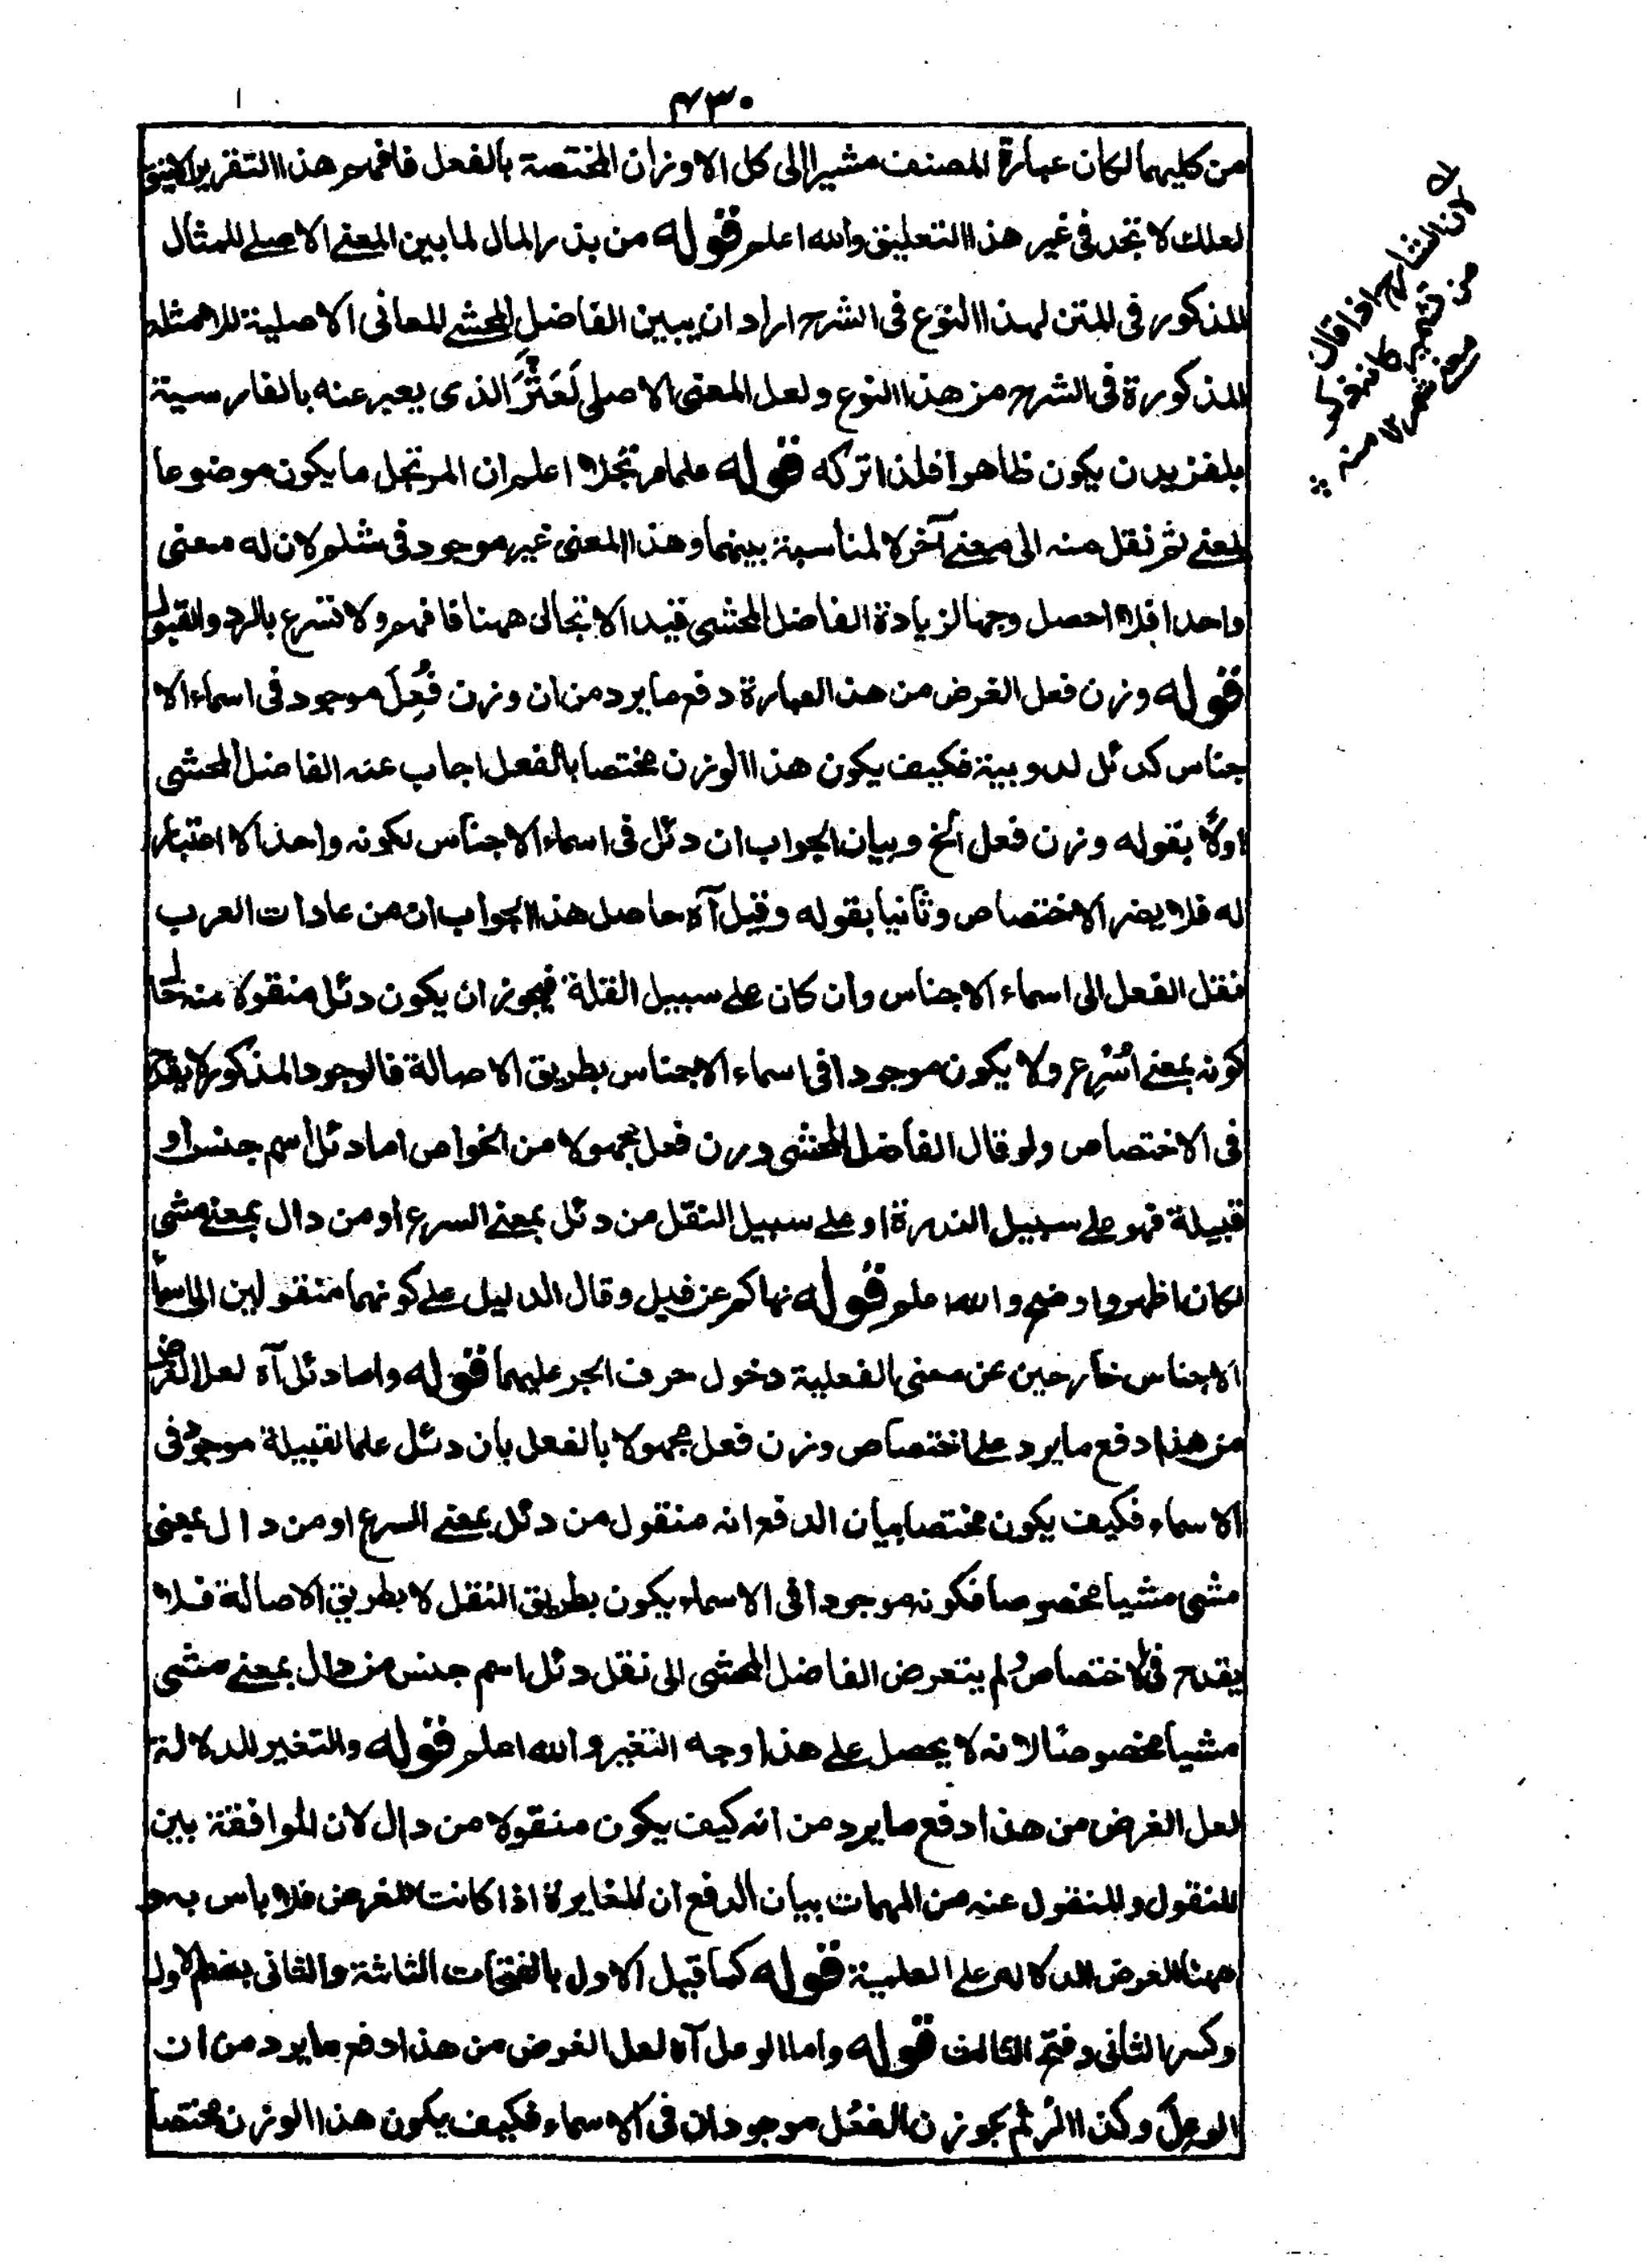 ٤٣٠
من كليهما لكان عبارة المصنف مشيرا الى كل الاوزان المختصة بالفعل فافهم هذا التقرير الانيق
لعلك لا تجد فى غير هذا التعليق والله اعلم قوله من بذر المال لما بين المعنے الاصلے للمثال
المذكور فى المتن لهذا النوع فى الشرح اراد ان يبين الفاضل المحشے المعانى الاصلية للامثلة
المذكورة فى الشرح من هذا النوع ولعل المعنى الاصلى لَعَثَّرَ الذى يعبر عنه بالفارسية
بلغزيدن يكون ظاهرا فلذا تركه قوله علما مرتجلا اعلم ان المرتجل ما يكون موضوعا
لمعنے ثم نقل منه الى معنے آخر لا لمناسبة بينهما وهذا المعنى غير موجود فى شلم لان له معنى
واحدا فلا احصل وجها لزيادة الفاضل المحشى قيد الارتجالى ههنا فافهم ولا تسرع بالرد والقبول
قوله وزن فعل الغرض من هذه العبارة دفع ما يرد من ان وزن فُعِلَ موجود فى اسماء الا
جناس كدئل لدويبة فكيف يكون هذا الوزن مختصا بالفعل اجاب عنه الفاضل المحشى
اولًا بقوله وزن فعل الخ وبيان الجواب ان دئل فى اسماء الاجناس لكونه واحدا لا اعتبار
له فلا يضر الاختصاص وثانيا بقوله وقيل آه حاصل هذا الجواب ان من عادات العرب
نقل الفعل الى اسماء الاجناس وان كان علے سبيل القلة فيجوز ان يكون دئل منقولا منه لحا
كونه بمعنے اُسْرِع ولا يكون موجودا فى اسماء الاجناس بطريق الاصالة فالوجود المذكور لا يقدح
فى الاختصاص ولو قال الفاضل المحشى وزن فعل مجهولا من الخواص اما دئل اسم جنس او
قبيلة فهو علے سبيل الندرة او علے سبيل النقل من دئل بمعنے السرع او من دال بمعنے مشى
لكان اظهر واوضح والله اعلم قوله نهاكم عن قيل وقال الدليل علے كونهما منقولين الى اسما
الاجناس خارجين عن معنى الفعلية دخول حرف الجر عليهما قوله واما دئل آه لعل الغرض
من هذا دفع ما يرد على اختصاص وزن فعل مجهولا بالفعل بان دئل علما لقبيلة موجود فى
الاسماء فكيف يكون مختصا بيان الدفع انه منقول من دئل بمعنے السرع او من دال بمعنى
مشى مشيا مخصوصا فكونه موجودا فى الاسماء يكون بطريق النقل لا بطريق الاصالة فلا
يقدح فى الاختصاص ولم يتعرض الفاضل المحشى الى نقل دئل اسم جنس من دال بمعنے مشى
مشيا مخصوصًا لانه لا يحصل على هذا وجه التغير والله اعلم قوله والتغير للدلالة
لعل الغرض من هذا دفع ما يرد من انه كيف يكون منقولا من دال لان الموافقة بين
المنقول والمنقول عنه من المهمات بيان الدفع ان المغايرة اذا كانت للغرض فلا باس به و
ههنا الغرض الدلالة على العلمية قوله كما قيل الاول بالفتحات الثلثة والثانى بضم الاول
وكسر الثانى وفتح الثالث قوله واما الوعل آه لعل الغرض من هذا دفع ما يرد من ان
الوعِلَ وكذا الرئم بوزن الفعل موجودان فى الاسماء فكيف يكون هذا الوزن مختصا
لان الشارح اذا قال
من
منه